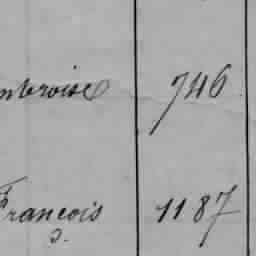 mbroise 746
François 1187